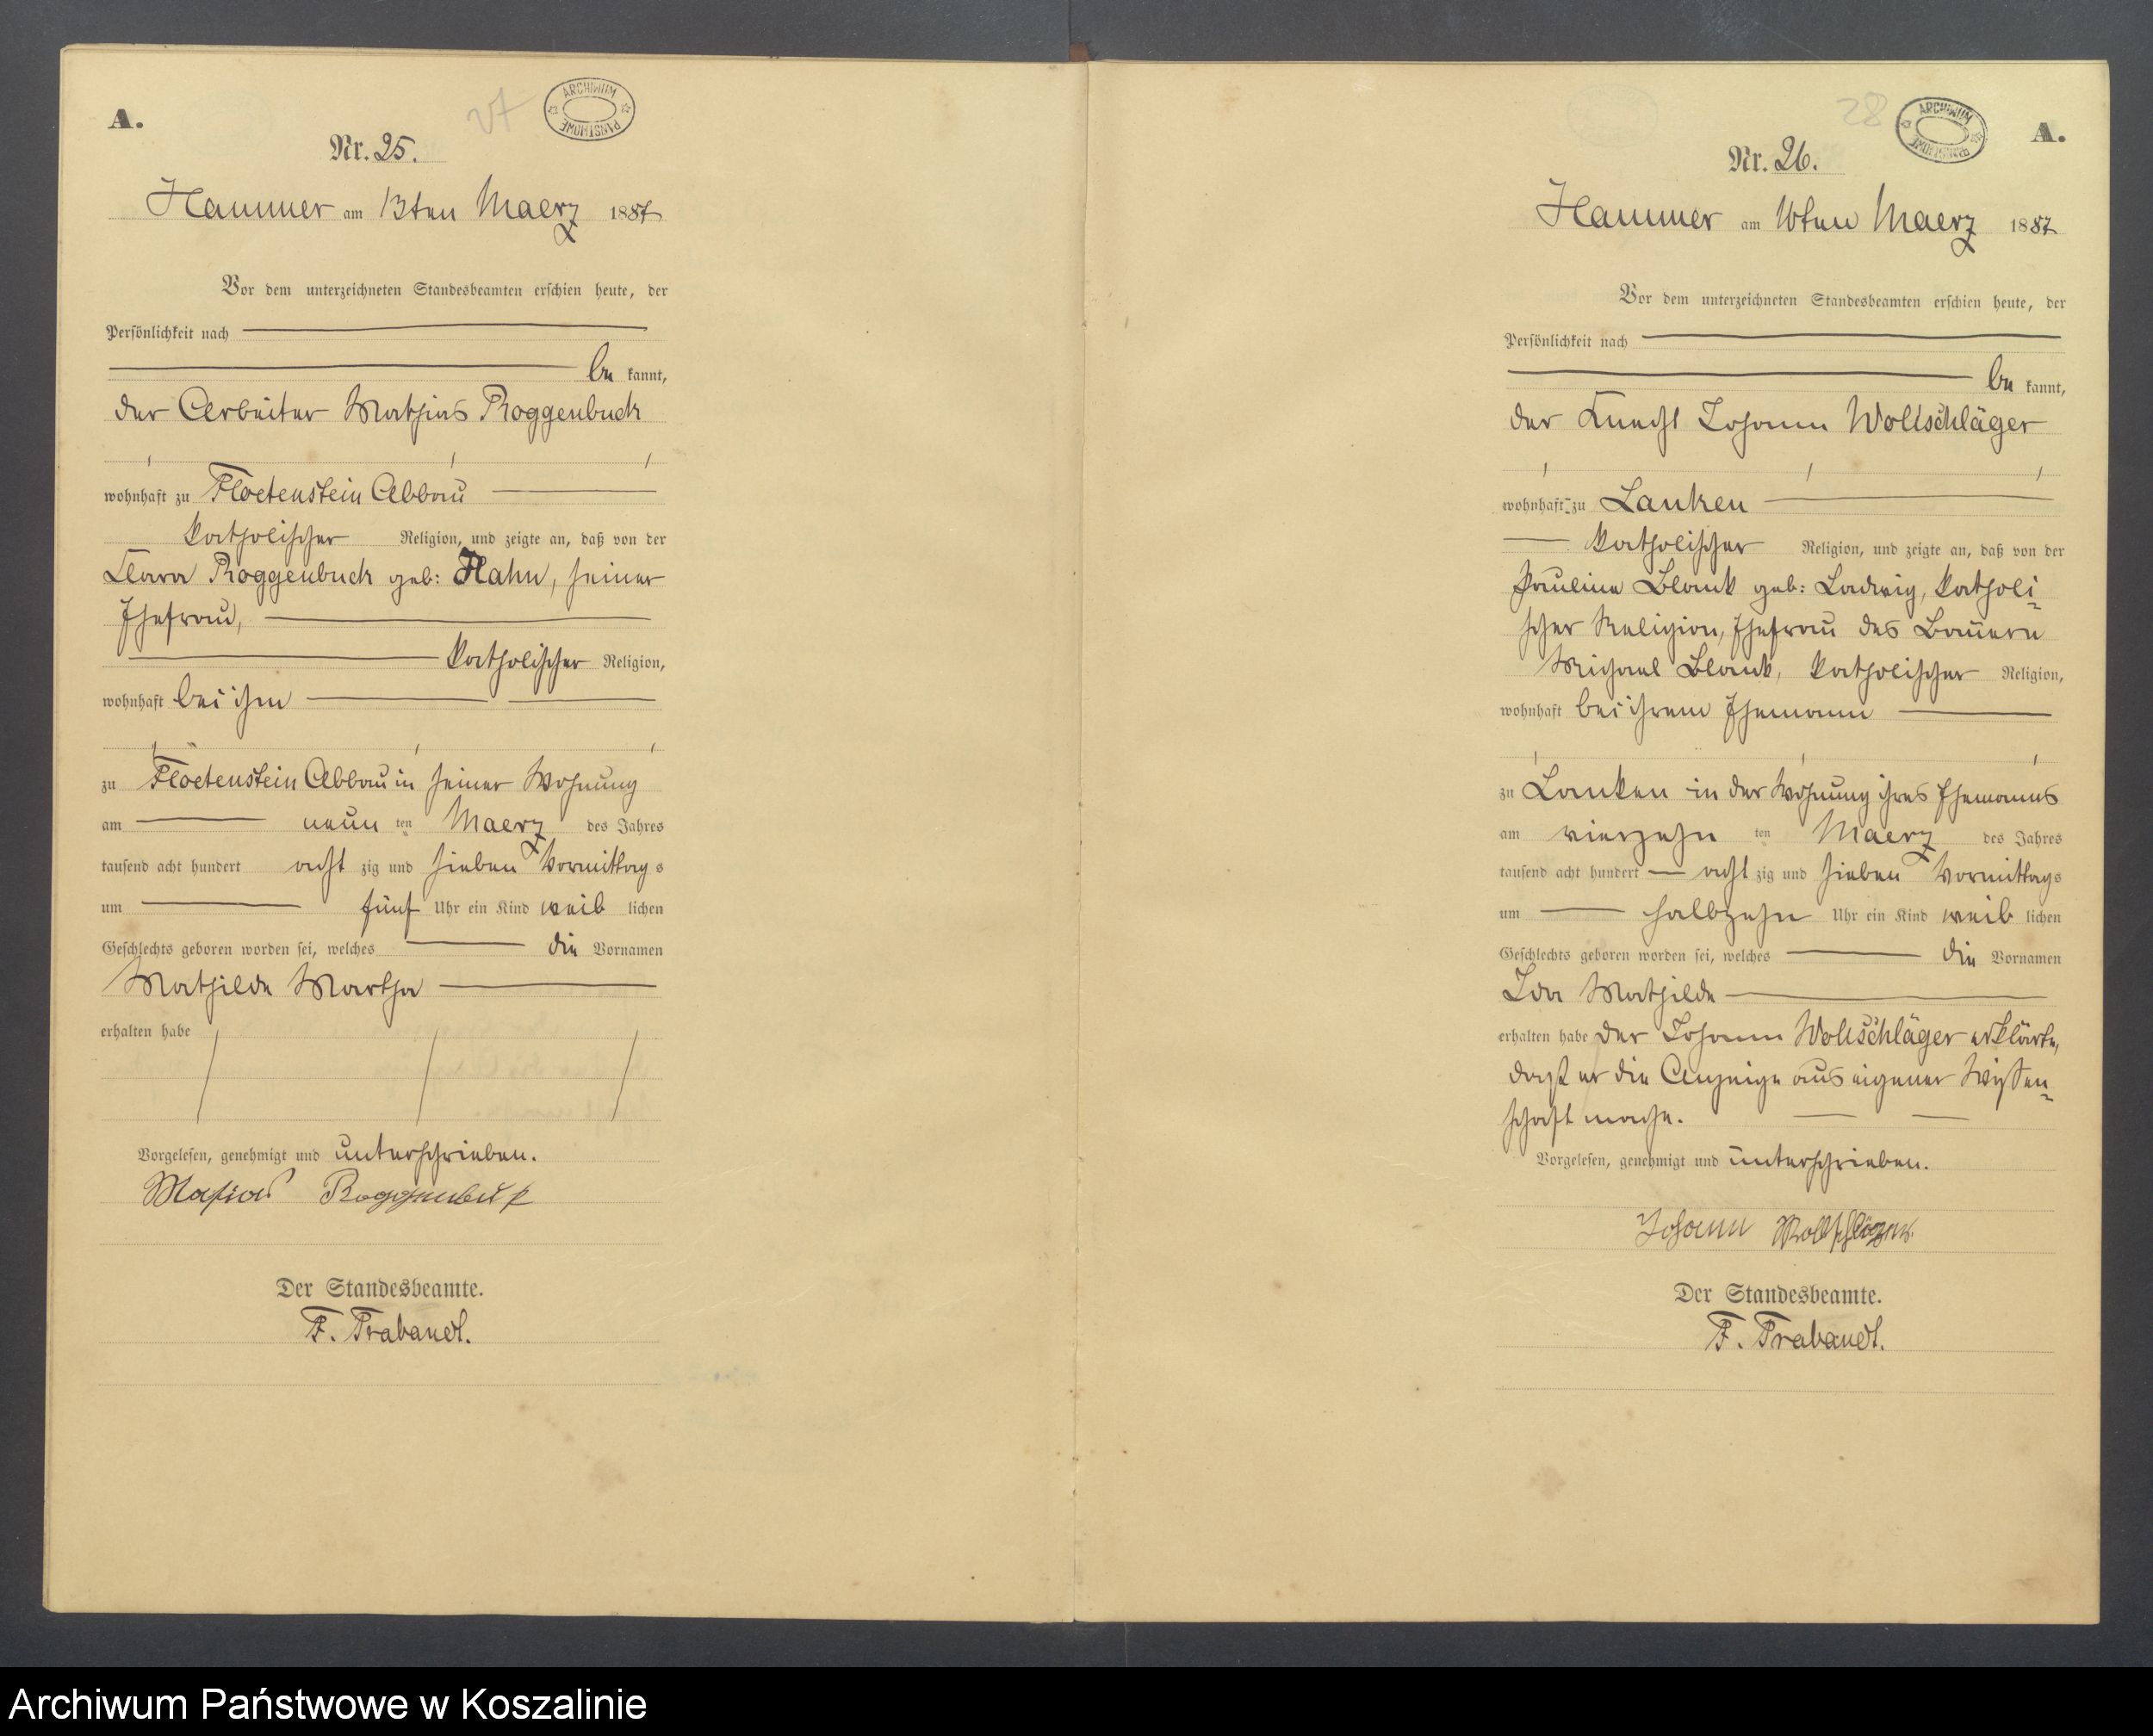 A.
27
ARCHIWUM PAŃSTWOWE
Nr. 25.
Hammer am 13ten Maerz 1887
Vor dem unterzeichneten Standesbeamten erschien heute, der
Persönlichkeit nach
be kannt,
der Arbeiter Mathias Roggenbuck
wohnhaft zu Floetenstein Abbau
katholischer Religion, und zeigte an, daß von der
Clara Roggenbuck geb: Hahn, seiner
Ehefrau,
katholischer Religion,
wohnhaft bei ihm
zu Floetenstein Abbau in seiner Wohnung
am neun ten Maerz des Jahres
tausend acht hundert acht zig und sieben Vormittags
um fünf Uhr ein Kind weib lichen
Geschlechts geboren worden sei, welches die Vornamen
Mathilde Martha
erhalten habe
Vorgelesen, genehmigt und unterschrieben.
Matias Roggenbuck
Der Standesbeamte.
F. Trabandt.
28
ARCHIWUM PAŃSTWOWE
A.
Nr. 26.
Hammer am 16ten Maerz 1887
Vor dem unterzeichneten Standesbeamten erschien heute, der
Persönlichkeit nach
be kannt,
der Knecht Johann Wollschläger
wohnhaft zu Lanken
katholischer Religion, und zeigte an, daß von der
Pauline Blank geb: Ladwig, katholi-
scher Religion, Ehefrau des Bauern
Michael Blank, katholischer Religion,
wohnhaft bei ihrem Ehemann
zu Lanken in der Wohnung ihres Ehemanns
am vierzehn ten Maerz des Jahres
tausend acht hundert acht zig und sieben Vormittags
um halbzehn Uhr ein Kind weib lichen
Geschlechts geboren worden sei, welches die Vornamen
Ida Mathilde
erhalten habe der Johann Wollschläger erklärte,
daß er die Anzeige aus eigener Wissen-
schaft mache.
Vorgelesen, genehmigt und unterschrieben.
Johann Wollschläger.
Der Standesbeamte.
F. Trabandt.
Archiwum Państwowe w Koszalinie